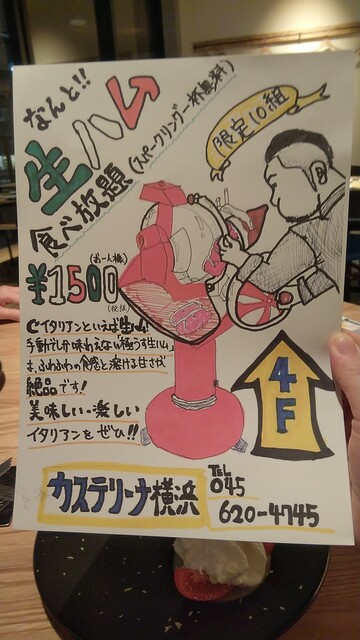 なんと!!
生ハム
食べ放題
(スパークリング一杯無料)
限定10組
(お一人様)
¥1500
(税抜)
イタリアンといえば生ハム!
手動でしか味わえない極うす生ハム
は、ふわふわの食感と溶ける甘さが
絶品です!
美味しい・楽しい
イタリアンを ぜひ!!
4F
カステリーナ横浜
TEL
045
620-4745